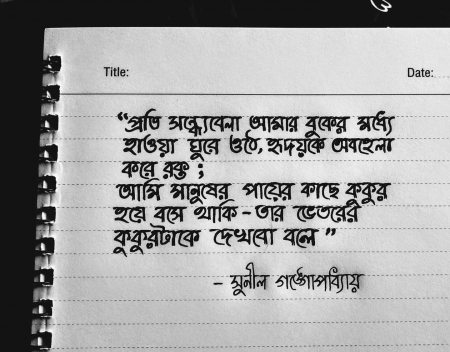 Title:
Date:
“প্রতি সন্ধ্যেবেলা আমার বুকের মধ্যে
হাওয়া ঘুরে ওঠে, হৃদয়কে অবহেলা
করে রক্ত ;
আমি মানুষের পায়ের কাছে কুকুর
হয়ে বসে থাকি - তার ভেতরের
কুকুরটাকে দেখবো বলে ”
- সুনীল গঙ্গোপাধ্যায়